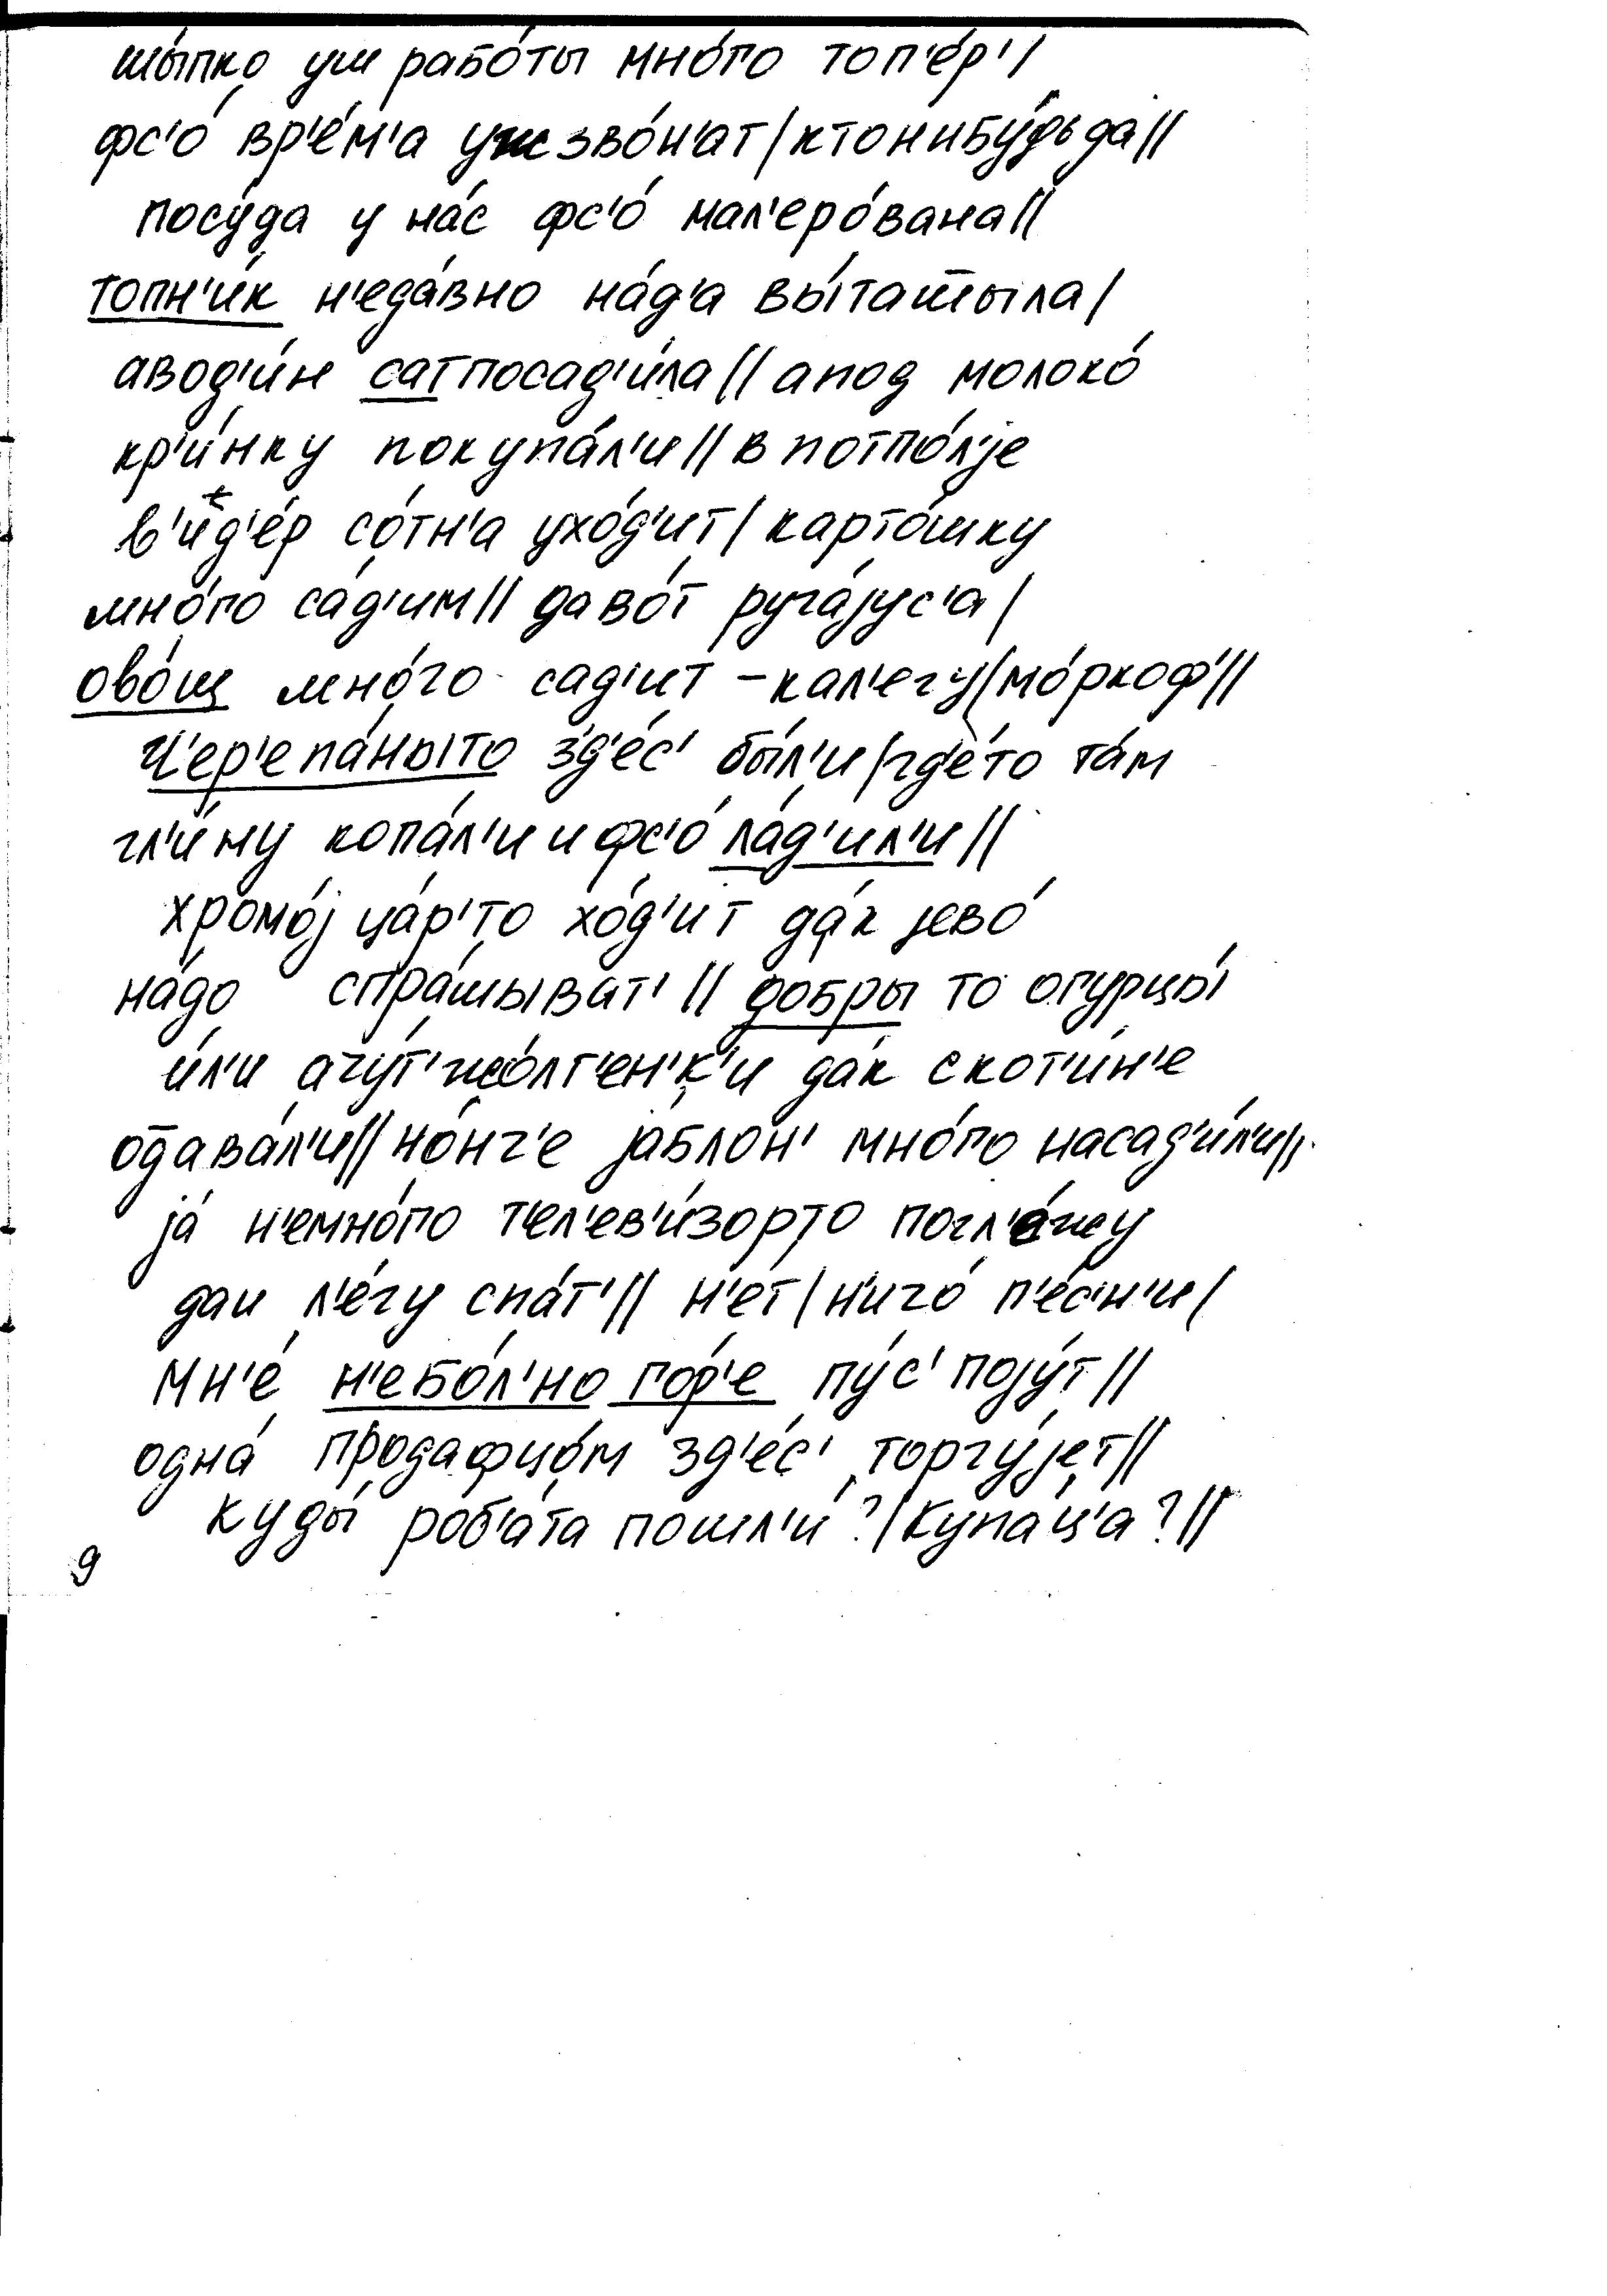 шы́пко уш рабо́ты мно́го топ'е́р'/
фс'о́ вр'е́м'а уж зво́н'ат/ктонибу́дь да//
посу́да у на́с фс'о́ мал'еро́вана//
топн'и́к н'еда́вно на́д'а вы́таш̅ыла/
авод'и́н сат посад'и́ла// а под молоко́
кр'и́нку покупа́л'и// в потпо́л'јe
в'ид'е́р со́тн'а ухо́д'ит/ карто́шку
мно́го са́д'им// да во́т руга́јус'а/
ово́щ мно́го сад'ит – кал'егу/мо́ркоф'//
Ч'ер'епа́ныто зд'е́с' бы́л'и/гд'е́то та́м
гл'и́ну копа́л'и и фс'о́ ла́д'ил'и//
хромо́ј ца́р'то хо́д'ит да́к јево́
на́до спра́шыват'// добры то огурцы́
и́л'и ачу́т' жо́лт'ен'к'и да́к скот'и́н'е
од̅ава́л'и// но́нч'е јаблон' мно́го насад'и́л'и//
ја́ н'емно́го т'ел'ев'и́зорто погл'ажу
даи л'е́гу спа́т'// н'е́т/ н'иго́ п'е́с'н'и/
Мн'е́ н'ебо́л'но го́р'е пу́с' поју́т//
одна́ продафцо́м зд'е́с' торгу́јет//
куды́ роб'а́та пошл'и́?/Купа́ц'а?//
9